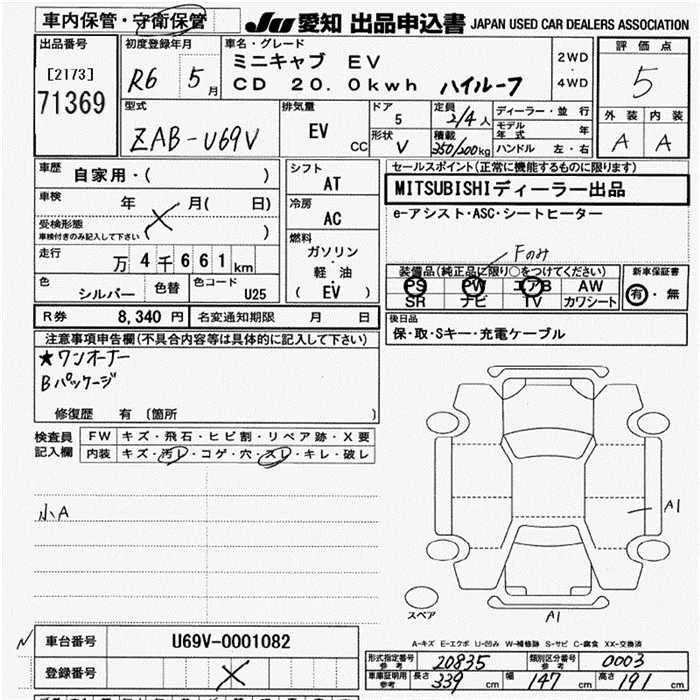 車内保管・守衛保管
JU 愛知 出品申込書 JAPAN USED CAR DEALERS ASSOCIATION
出品番号
[2173]
71369
初度登録年月
R6 5月
車名・グレード
ミニキャブ EV
CD 20.0kwh ハイルーフ
2WD
・
4WD
評価点
5
外装 内装
A A
型式
ZAB-U69V
排気量
EV
CC
ドア
5
形状
V
定員
2/4人
積載
350/200kg
ディーラー・並行
モデル
年式 年
ハンドル 左・右
車歴
自家用・( )
車検
年 月( 日)
受検形態
車検付きのみ記入して下さい ( )
走行
万4千661km
色
シルバー
色替
色コード
U25
シフト
AT
冷房
AC
燃料
ガソリン
・
軽・油
( EV )
セールスポイント(正常に機能するものに限ります)
MITSUBISHIディーラー出品
e-アシスト・ASC・シートヒーター
Fのみ
装備品(純正品に限り○をつけてください)
PS PW エアB AW
SR ナビ TV カワシート
新車保証書
有・無
R券 8,340円 名変通知期限 月 日
後日品
保・取・Sキー・充電ケーブル
注意事項申告欄(不具合内容等は具体的に記入して下さい)
★ワンオーナー
Bパッケージ
修復歴 有 〔箇所 〕
検査員
記入欄
FW キズ・飛石・ヒビ割・リペア跡・X要
内装 キズ・汚レ・コゲ・穴・スレ・キレ・破レ
小A
A1
スペア
A1
車台番号 U69V-0001082
登録番号
A-キズ E-エクボ U-凹み W-補修跡 S-サビ C-腐食 XX-交換済
形式指定番号
参考 20835
類別区分番号
参考 0003
車庫証明用
参考 長さ 339 cm 幅 147 cm 高さ 191 cm